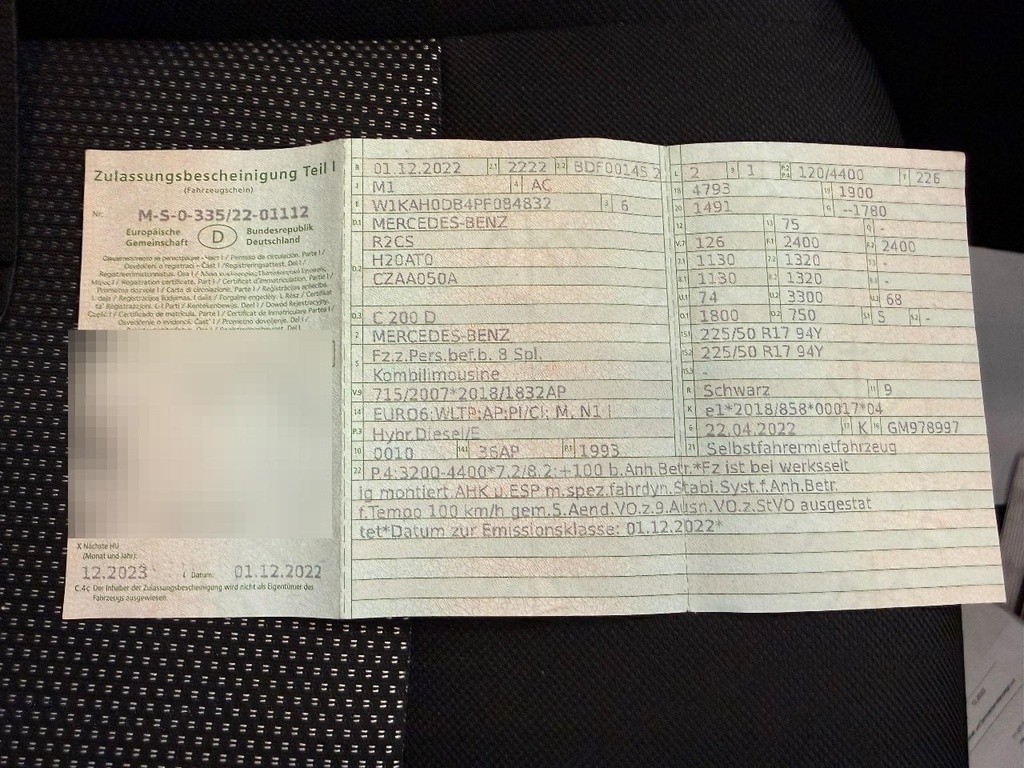 Zulassungsbescheinigung Teil I
(Fahrzeugschein)
Nr. M-S-0-335/22-01112
Europäische Gemeinschaft D Bundesrepublik Deutschland
X Nächste HU
(Monat und Jahr):
12.2023 I Datum: 01.12.2022
C.4c Der Inhaber der Zulassungsbescheinigung wird nicht als Eigentümer des
Fahrzeugs ausgewiesen.
B 01.12.2022 2.1 2222 2.2 BDF00145 2
J M1 4 AC
E W1KAH0DB4PF084832 3 6
D.1 MERCEDES-BENZ
R2CS
D.2 H20AT0
CZAA050A
D.3 C 200 D
2 MERCEDES-BENZ
5 Fz.z.Pers.bef.b. 8 Spl.
Kombilimousine
V.9 715/2007*2018/1832AP
14 EURO6;WLTP;AP;PI/CI; M, N1 I
P.3 Hybr.Diesel/E
10 0010 14.1 36AP P.1 1993
L 2 9 1 P.2 P.4 120/4400 T 226
18 4793 19 1900
20 1491 G --1780
12 - 13 75 Q -
V.7 126 F.1 2400 F.2 2400
7.1 1130 7.2 1320 7.3 -
8.1 1130 8.2 1320 8.3 -
U.1 74 U.2 3300 U.3 68
O.1 1800 O.2 750 S.1 5 S.2 -
15.1 225/50 R17 94Y
15.2 225/50 R17 94Y
15.3 -
R Schwarz 11 9
K e1*2018/858*00017*04
6 22.04.2022 17 K 16 GM978997
21 Selbstfahrermietfahrzeug
22 P.4:3200-4400*7.2/8.2:+100 b.Anh.Betr.*Fz ist bei werksseit
ig montiert AHK u.ESP m.spez.fahrdyn.Stabi.Syst.f.Anh.Betr.
f.Tempo 100 km/h gem.5.Aend.VO.z.9.Ausn.VO.z.StVO ausgestat
tet*Datum zur Emissionsklasse: 01.12.2022*